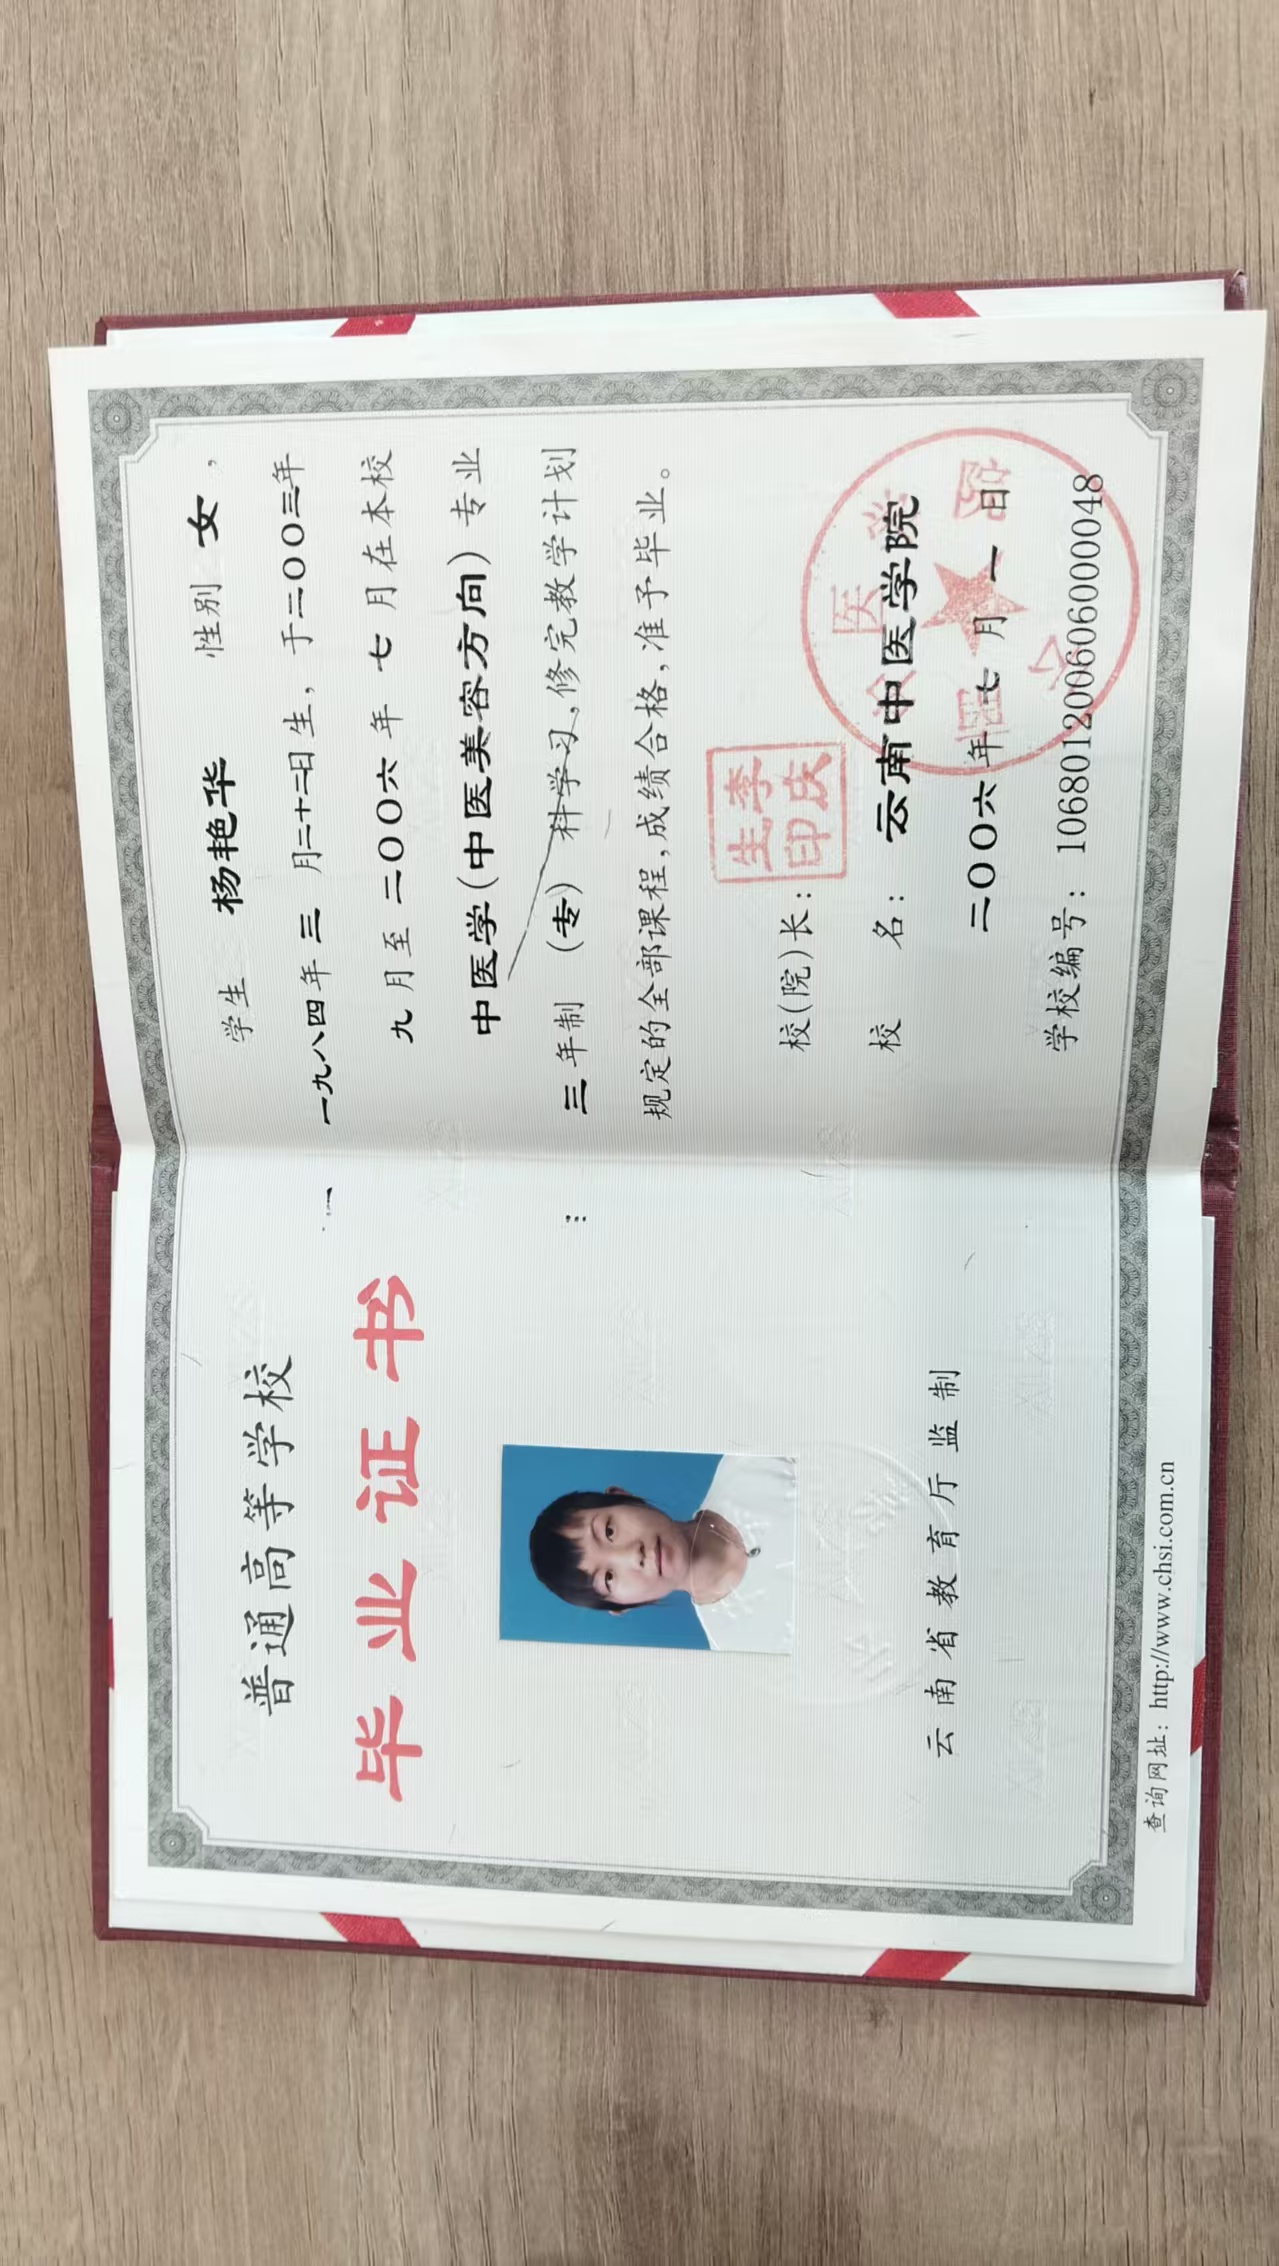 普通高等学校
毕业证书
云南省教育厅监制
查询网址：http://www.chsi.com.cn
学生 杨艳华 性别 女，
一九八四年 三 月二十二日生，于二〇〇三年
九 月至 二〇〇六 年 七 月在本校
中医学（中医美容方向）专业
三 年制 （专） 科学习，修完教学计划
规定的全部课程，成绩合格，准予毕业。
校（院）长：
李庆生印
校 名： 云南中医学院
二〇〇六 年 七 月 一 日
学校编号：106801200606000048